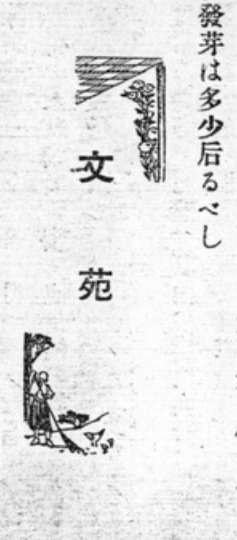 發芽は多少后るべし
文苑